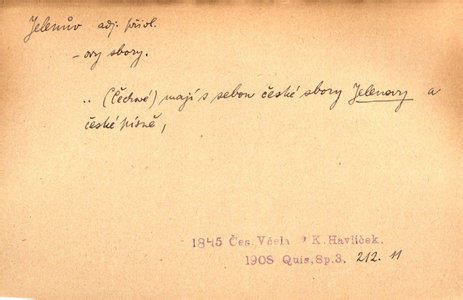 Jelenův adj. přivl.
-ovy sbory.
.. (Čechové) mají s sebou české sbory Jelenovy a
české písně,
1845 Čes. Včela K. Havlíček.
1908 Quis, Sp. 3. 212. 11